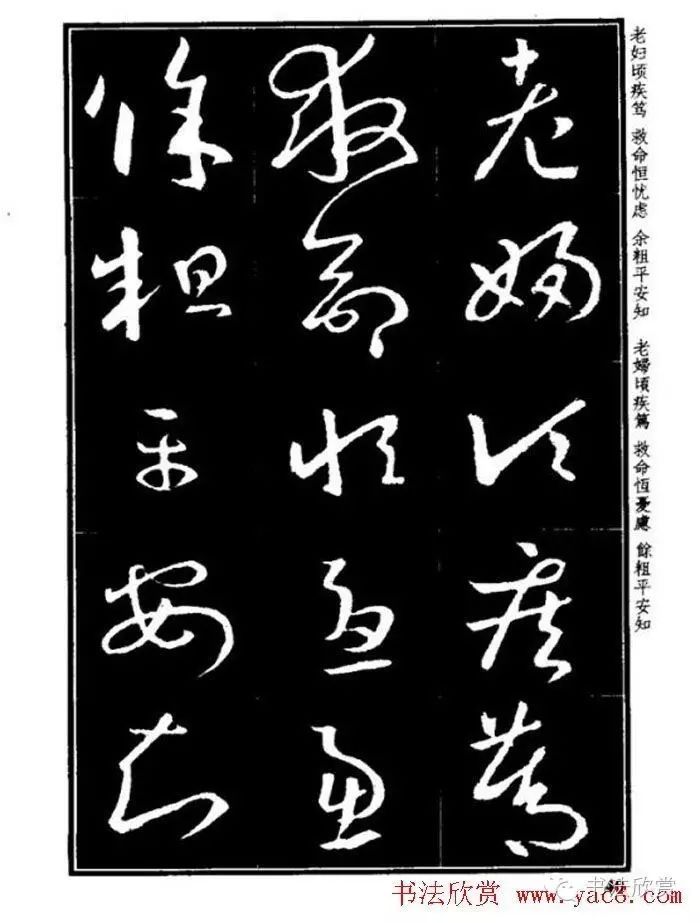 老妇顷疾笃 救命恒忧虑 余粗平安知 老婦頃疾篤 救命恆憂慮 餘粗平安知
老婦頃疾篤
救命恆憂慮
餘粗平安知
书法欣赏 www.yac8.com
书法欣赏